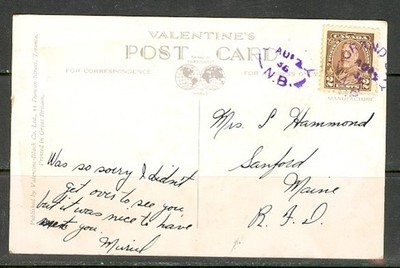 VALENTINE'S
POST CARD
FOR CORRESPONDENCE
FOR ADDRESS ONLY
MANUFACTURE
CANADA
2 CENTS 2
AU 12
36
N.B.
GRAND
Published by Valentine-Black Co., Ltd., 11 Duncan Street, Toronto.
Printed in Great Britain.
Mrs. S Hammond
Sanford
Maine
R.F.D.
Was so sorry I didn't
get over to see you
but it was nice to have
you.
Muriel